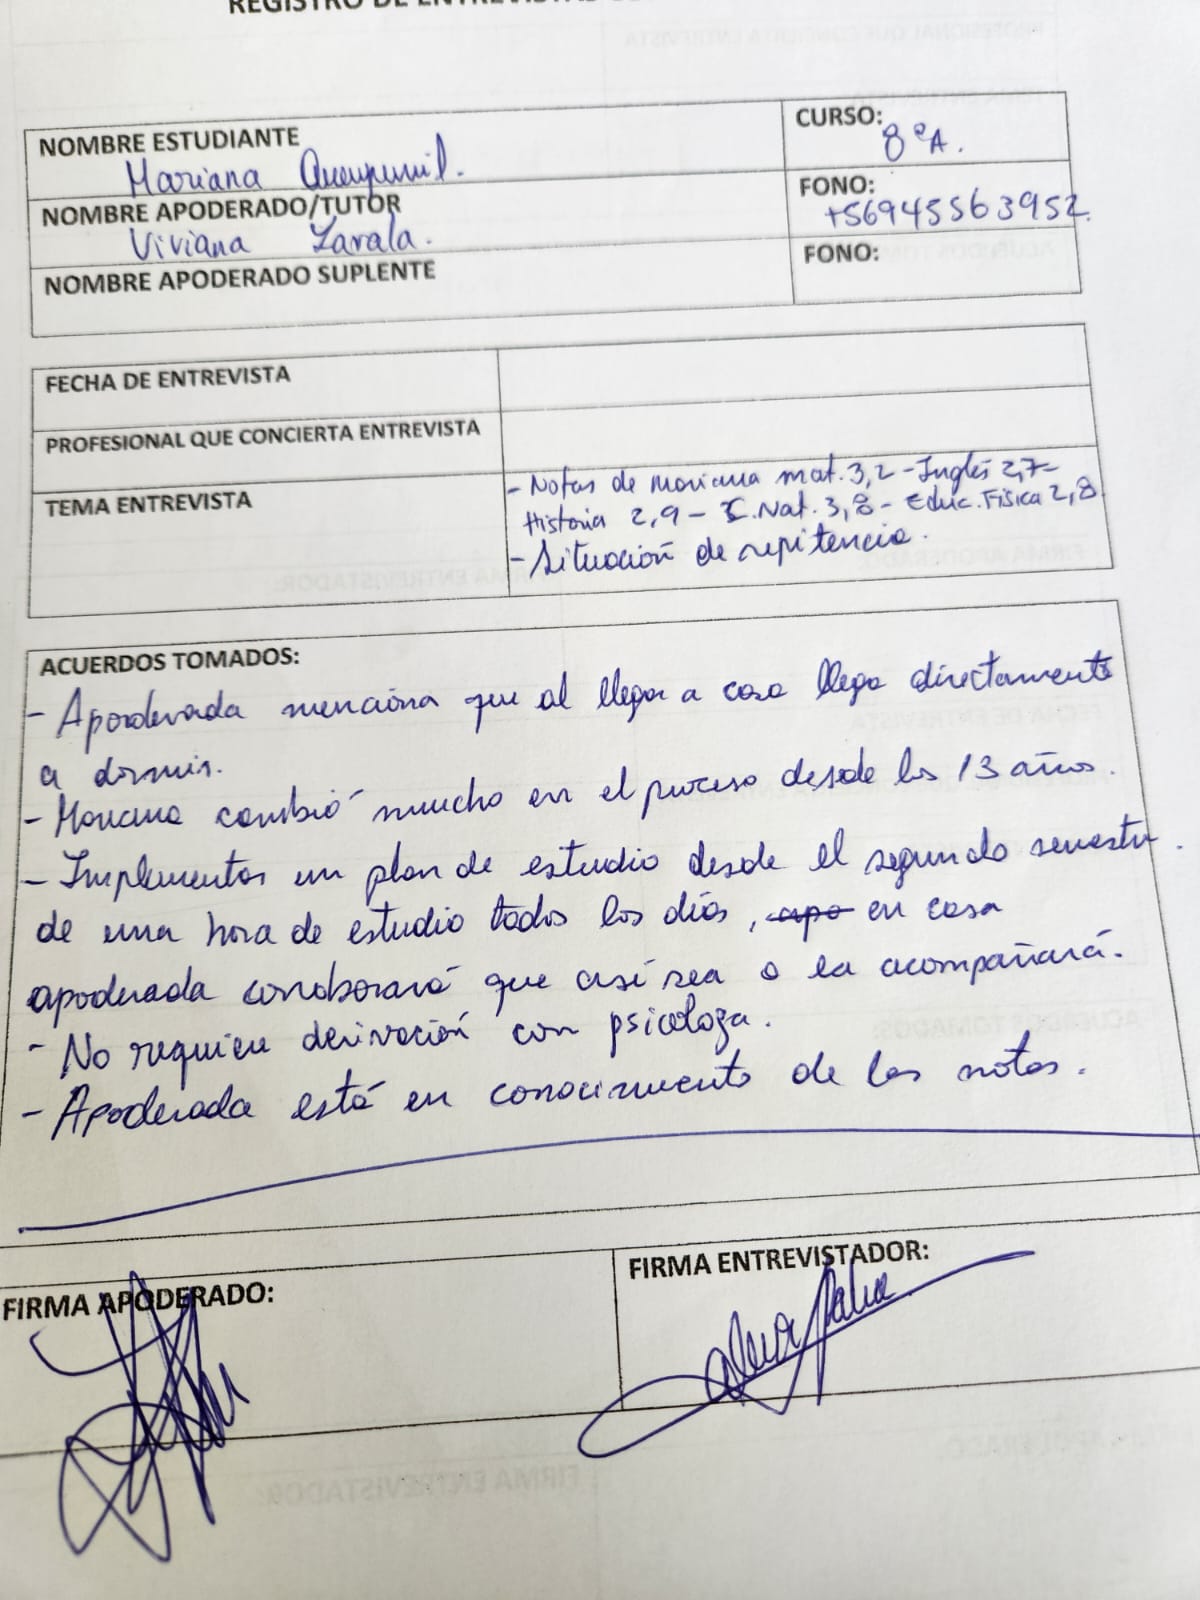 REGISTRO DE ENTREVISTAS
NOMBRE ESTUDIANTE
Mariana Queupumil.
CURSO:
8°A.
NOMBRE APODERADO/TUTOR
Viviana Zavala.
FONO:
+56945563952
NOMBRE APODERADO SUPLENTE
FONO:
FECHA DE ENTREVISTA
PROFESIONAL QUE CONCIERTA ENTREVISTA
TEMA ENTREVISTA
- Notas de Mariana mat. 3,2 - Inglés 2,7-
Historia 2,9 - C.Nat. 3,8 - Educ. Física 2,8
- Situación de repitencia.
ACUERDOS TOMADOS:
- Apoderada menciona que al llegar a casa llega directamente
a dormir.
- Mariana cambió mucho en el proceso desde los 13 años.
- Implementar un plan de estudio desde el segundo semestre.
de una hora de estudio todos los días, apo en casa
apoderada corroborará que así sea o la acompañará.
- No requiere derivación con psicóloga.
- Apoderada está en conocimiento de las notas.
FIRMA APODERADO:
FIRMA ENTREVISTADOR: